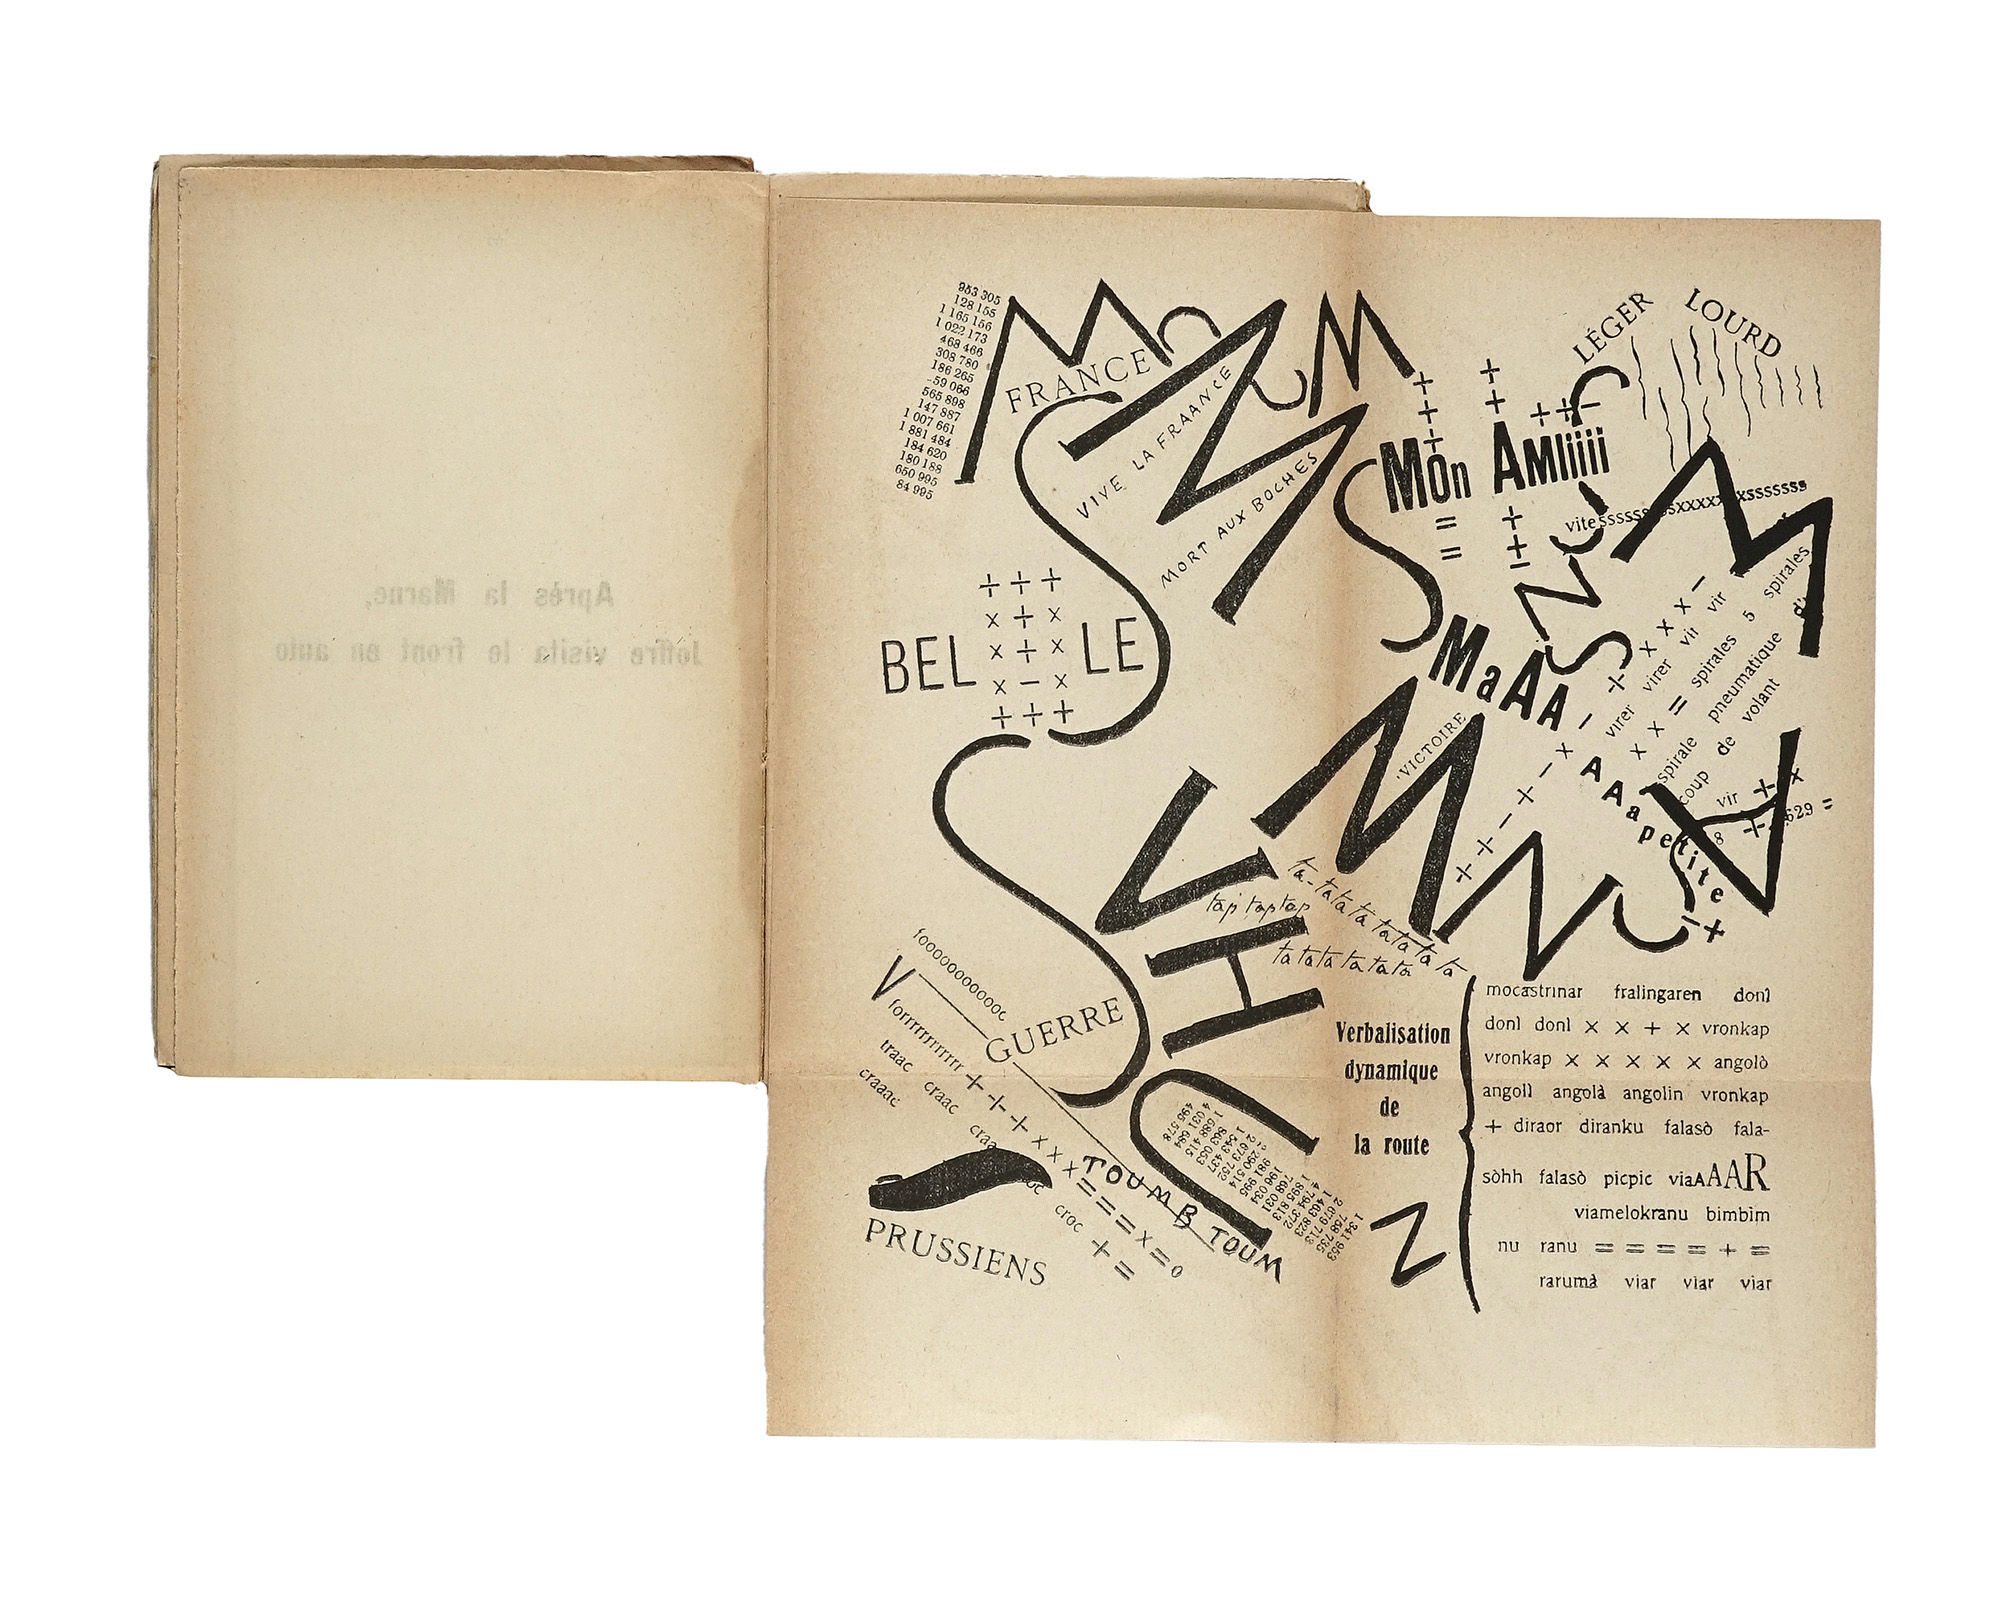 Après la Marne,
Joffre visita le front en auto
953 305
128 155
1 165 156
1 022 173
468 466
308 780
186 265
-59 066
565 898
147 887
1 007 661
1 881 484
184 620
180 188
650 995
84 995
M
FRANCE
M
M
VIVE LA FRAANCE
MORT AUX BOCHES
S
S
LÉGER LOURD
+ + + + + -
MOn AMIiiii
= = + + =
vitesssssssxxxxxxxsssssss
M
+ + +
x + x
BEL x + x LE
x - x
+ + +
MaAA
AAapetite
VICTOIRE
M
virer virer vir vir
x x = spirales 5 spirales
spirale pneumatique
coup de volant
vir + x
8 + 629 =
S
V
H
U
ta-tatatatatatatata
tap taptap
tatatatatata
fooooooooooc
V
GUERRE
forrrrrrrrrrr + + + x x x = = = x = 0
traac craac
craaac
croc + =
TOUMB TOUM
PRUSSIENS
495 578
4 031 684
1 688 415
863 053
1 543 437
N
Verbalisation
dynamique
de
la route
mocastrinar fralingaren donì
donì donì x x + x vronkap
vronkap x x x x x angolò
angolì angolà angolin vronkap
+ diraor diranku falasò fala-
sòhh falasò picpic viaAAAR
viamelokranu bimbim
nu ranu = = = = + =
rarumà viar viar viar